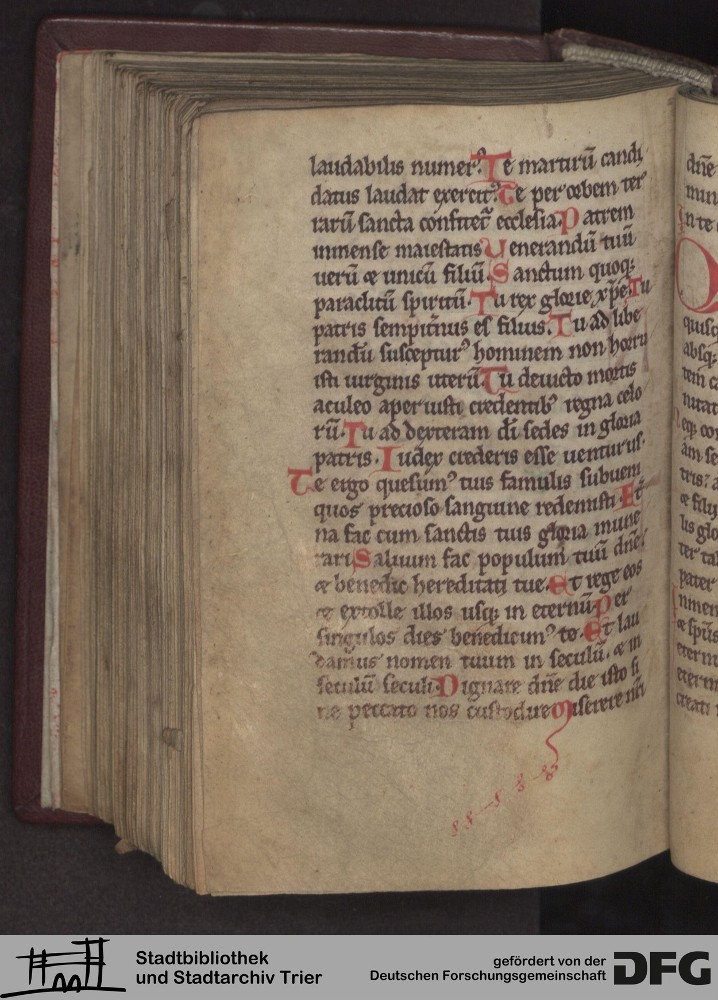 laudabilis numerꝰ. Te martirū candi
datus laudat exercitꝰ. Te per orbem ter
rarū sancta confitet᷑ ecclesia. Patrem
inmense maiestatis Uenerandū tuū
uerū & unicū filiū. Sanctum quoqꝫ
paraclitū spiritū. Tu rex glorie xp̄e. Tu
patris sempit̄nus es filius. Tu ad libe
randū susceptur⁹ hominem non horru
isti uirginis uterū Tu deuicto mortis
aculeo aperuisti credentibꝰ regna celo
rū. Tu ad dexteram dī sedes in gloria
patris. Iudex crederis esse uenturus.
Te ergo quesumꝰ tuis famulis subueni
quos precioso sanguine redemisti. Et̄
na fac cum sanctis tuis gloria mune
rari Saluum fac populum tuū dn̄e.
& benedic hereditati tue. Et rege eos
& extolle illos usqꝫ in eternū Per
singulos dies benedicimꝰ te. Et lau
damus nomen tuum in seculū. & in
seculū seculi Dignare dn̄e die isto si
ne peccato nos custodire Miserere nr̄i
dn̄e
In te
quisq
absqꝫ
tem
pater
& spūs
creati
Stadtbibliothek
und Stadtarchiv Trier
gefördert von der
Deutschen Forschungsgemeinschaft
DFG